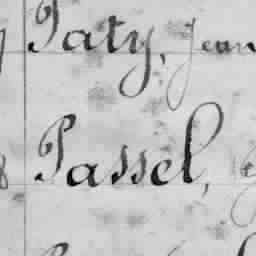 Paty, Jean
Passel,